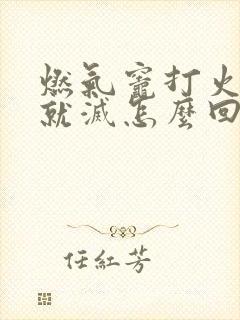 燃氣竈打火
就滅怎麼回
任紅芳